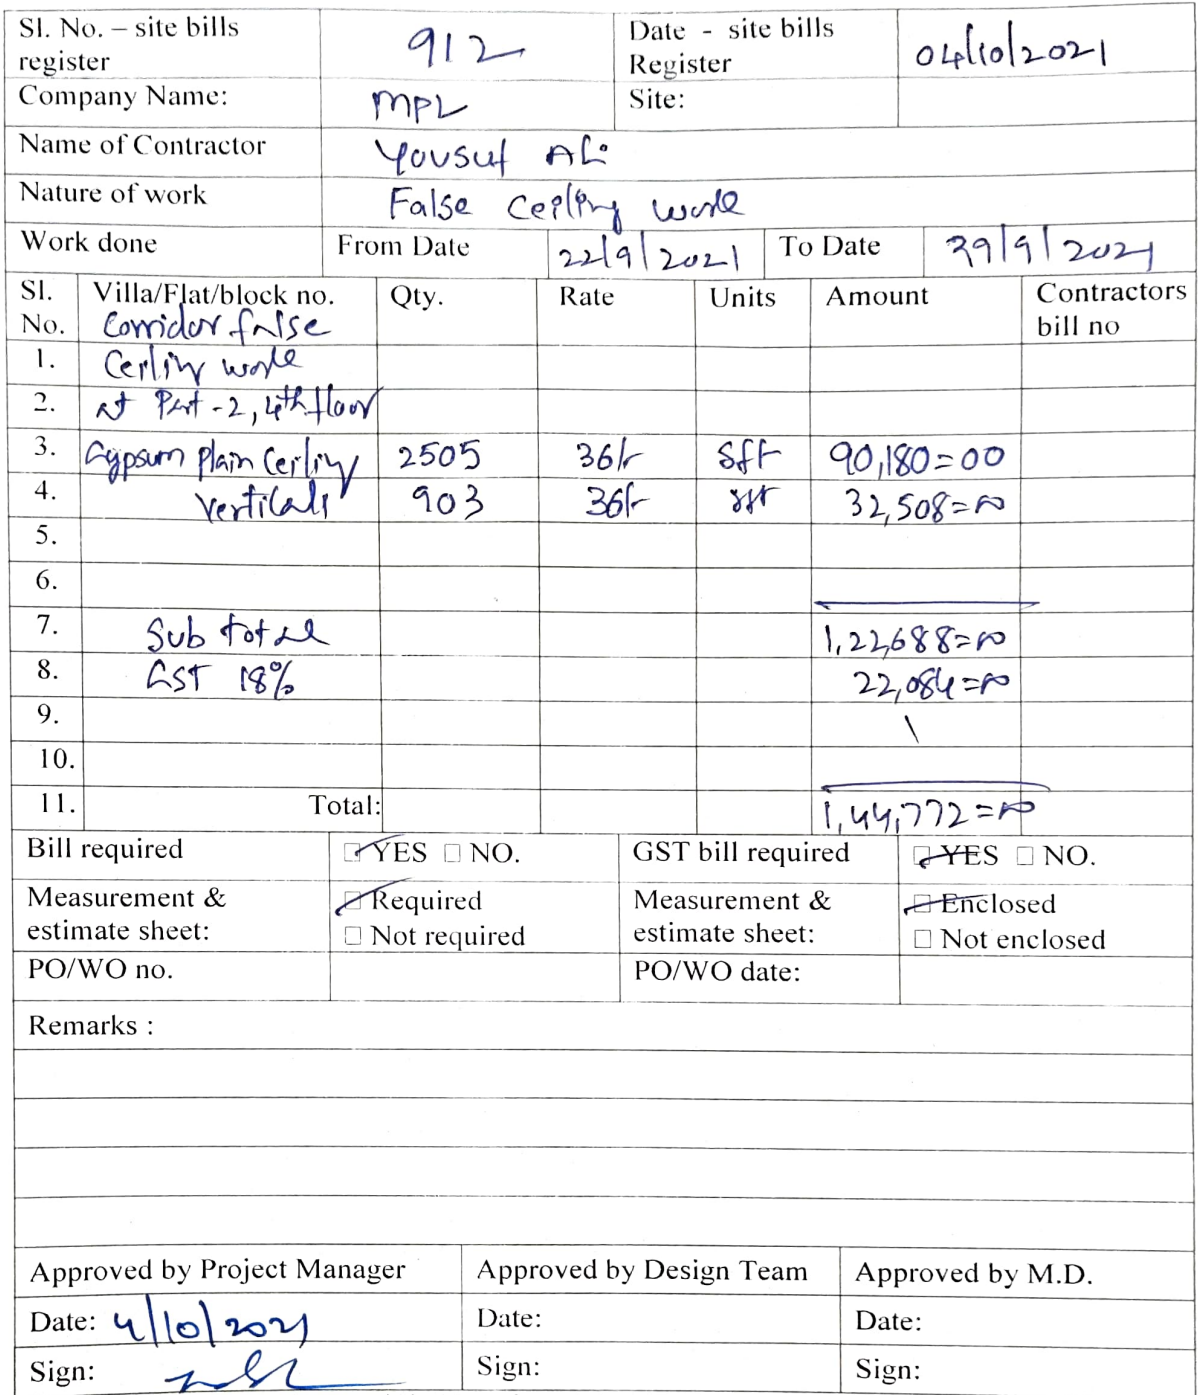 Sl. No. – site bills register 912 Date - site bills Register 04/10/2021
Company Name: MPL Site:
Name of Contractor Yousuf Ali
Nature of work False Ceiling work
Work done From Date 22/9/2021 To Date 29/9/2021
Sl. No. Villa/Flat/block no. Qty. Rate Units Amount Contractors bill no
Corridor false
1. Ceiling work
2. at Part-2, 4th floor
3. Gypsum plain Ceiling 2505 36/- sft 90,180=00
4. Verticals 903 36/- sft 32,508=00
5.
6.
7. Sub total 1,22,688=00
8. GST 18% 22,084=00
9. \
10.
11. Total: 1,44,772=00
Bill required ☑ YES ☐ NO. GST bill required ☑ YES ☐ NO.
Measurement & estimate sheet: ☑ Required ☐ Not required Measurement & estimate sheet: ☑ Enclosed ☐ Not enclosed
PO/WO no. PO/WO date:
Remarks :
Approved by Project Manager Approved by Design Team Approved by M.D.
Date: 4/10/2021 Date: Date:
Sign: Sign: Sign: